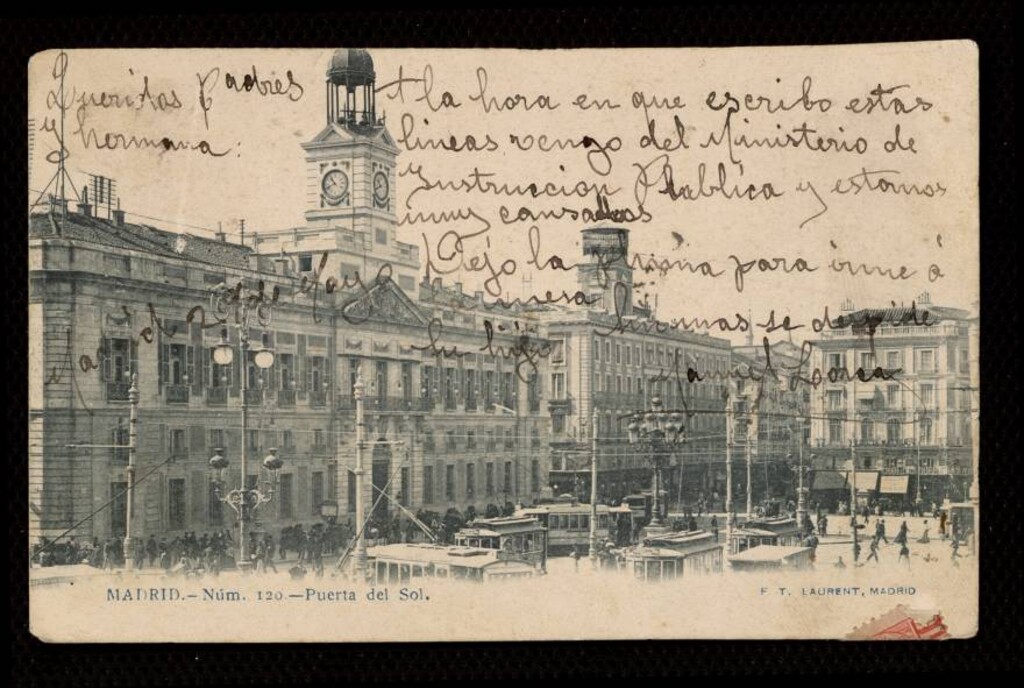 Queridos padres
y hermana:
A la hora en que escribo estas
lineas vengo del Ministerio de
Ynstruccion Publica y estamos
muy cansados
Dejo la pluma para irme á
la mesa
se despide
su hijo
Manuel Lorca
MADRID.-Núm. 120-Puerta del Sol.
F. T. LAURENT, MADRID